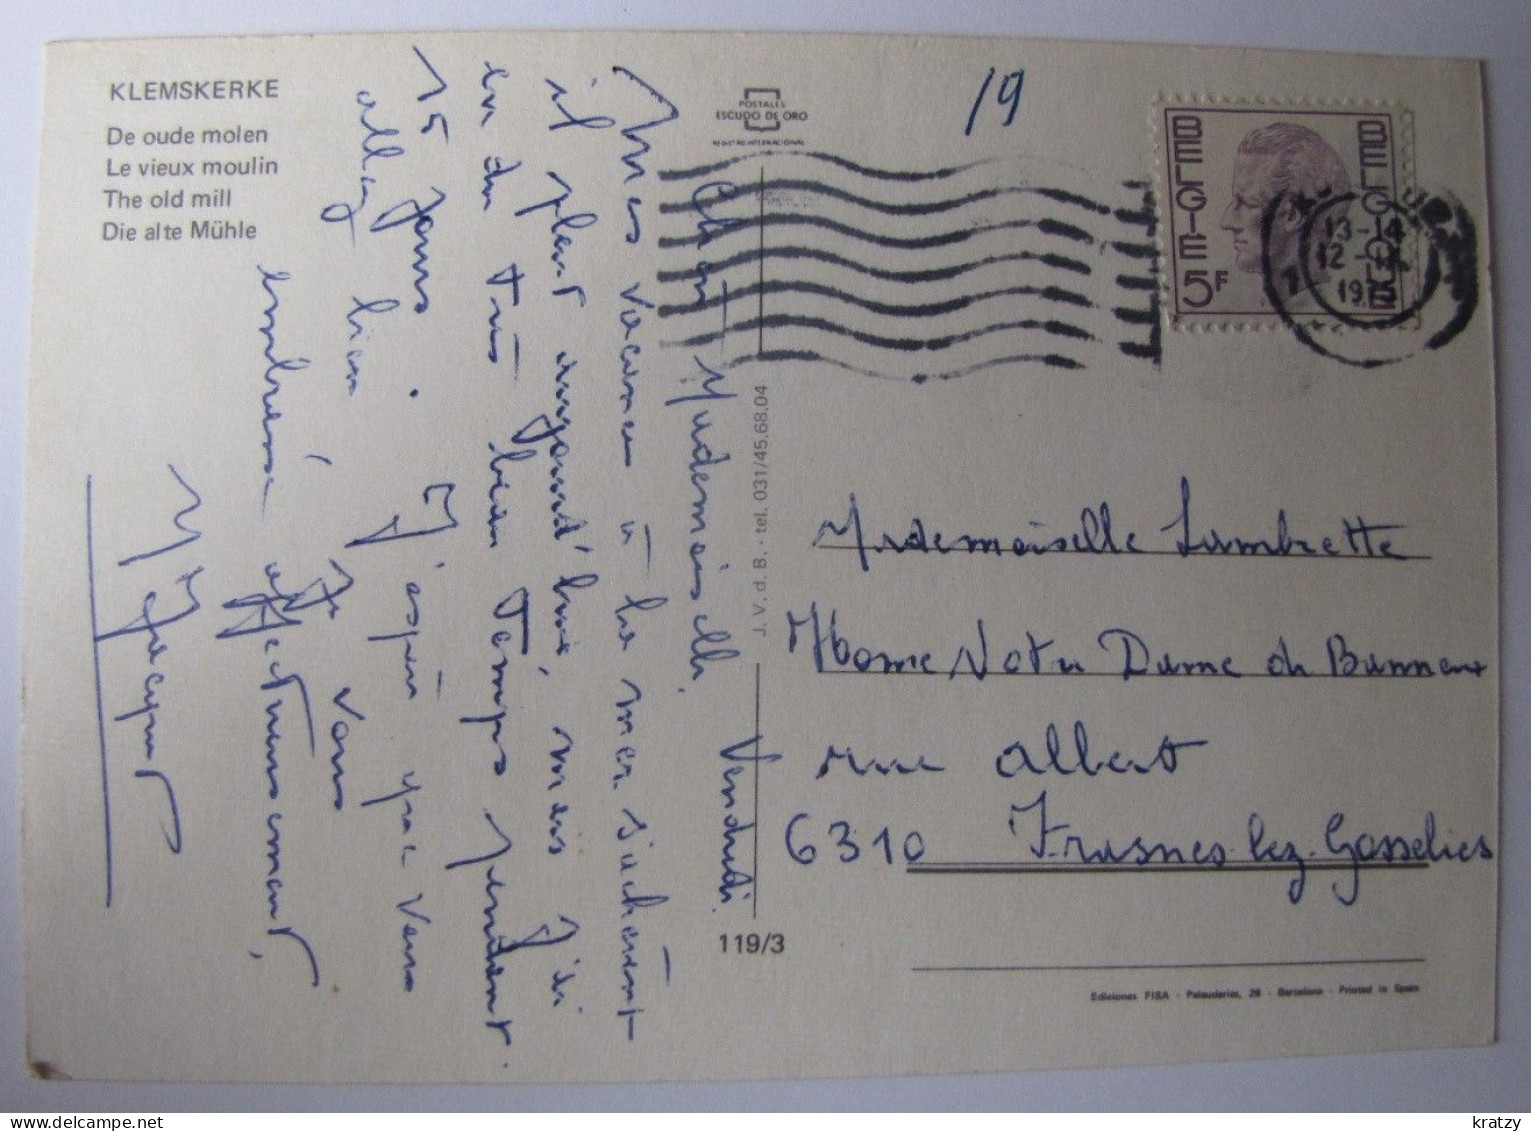 KLEMSKERKE
De oude molen
Le vieux moulin
The old mill
Die alte Mühle
POSTALES
ESCUDO DE ORO
REGISTRO INTERNACIONAL
19
BELGIE
BELGIQUE
5F
13-14
12
1975
Vendredi.
Chère Mademoiselle.
Mes vacances à la mer s'achèvent
il pleut aujourd'hui, mais j'ai
eu du très bien temps pendant
15 jours. J'espère que vous
allez bien
Je vous
embrasse affectueusement,
J. V. d. B. - tel. 031/45.68.04
119/3
Mademoiselle Lambrette
Home Notre Dame de Banneux
rue Albert
6310 Frasnes-lez-Gosselies
Ediciones FISA - Palaudarias, 26 - Barcelona - Printed in Spain
kratzy